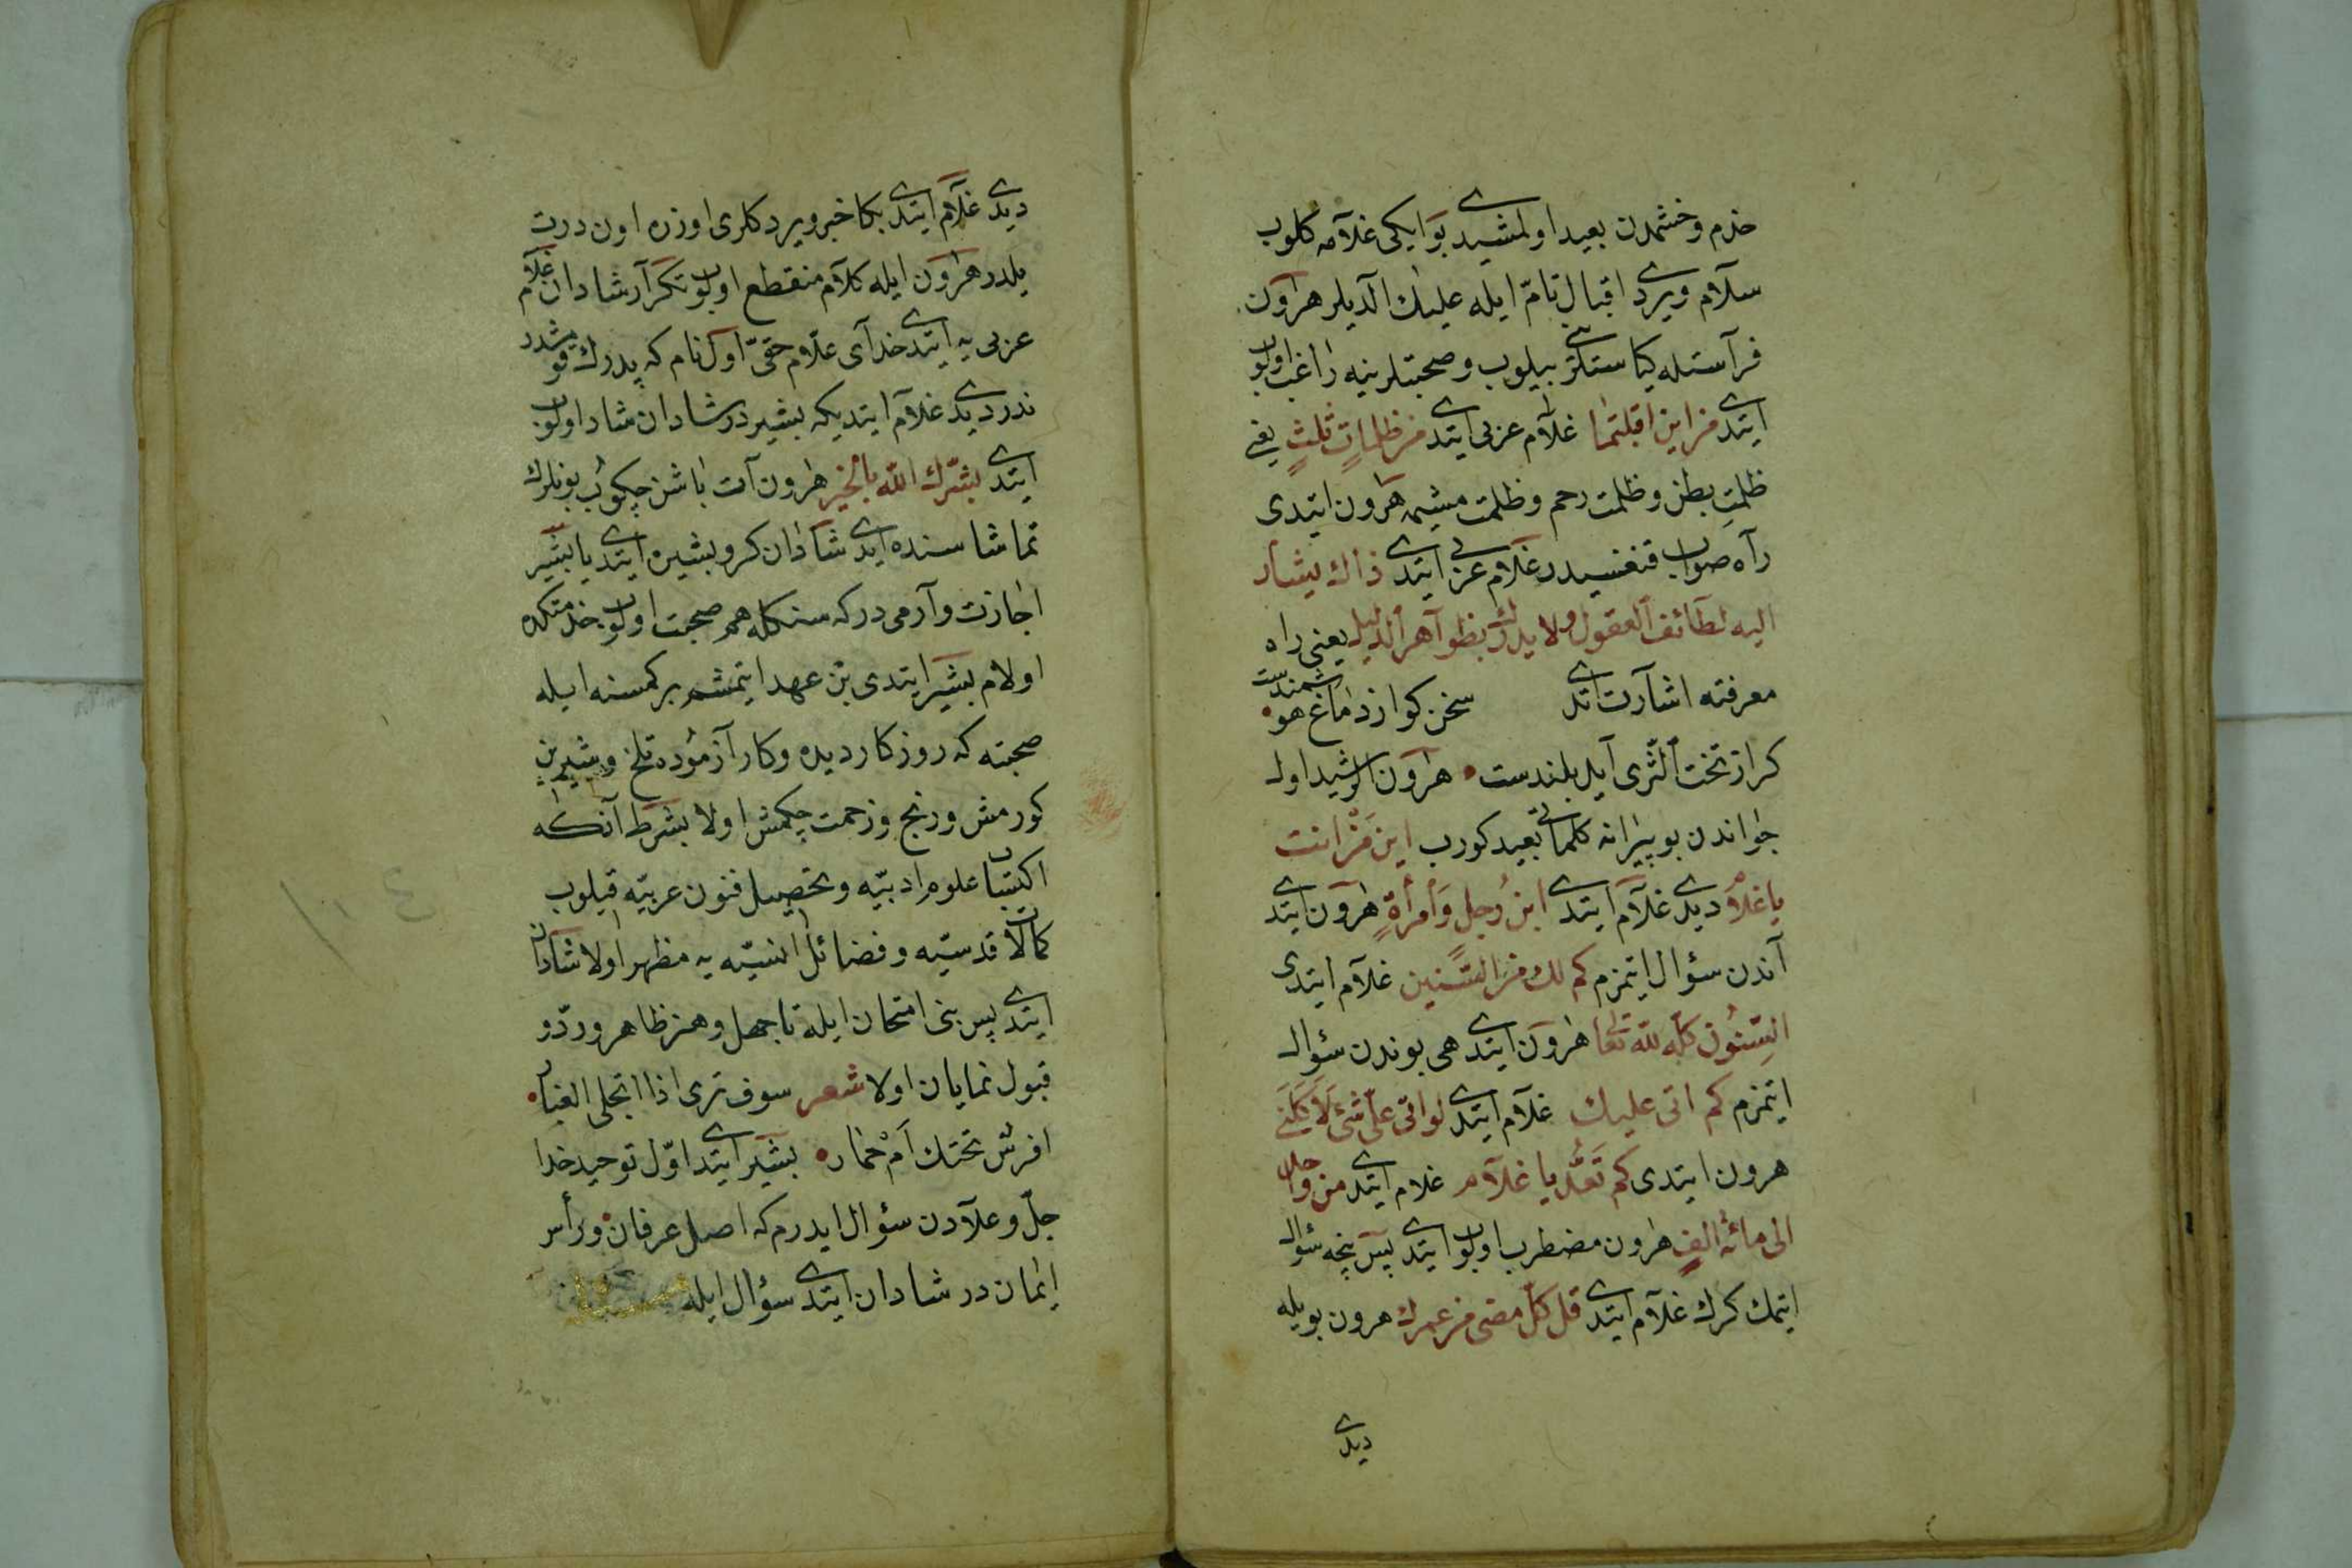 خدم وخشمدن بعيد اولمشيدى بو ايكى غلامه كلوب
سلام ويردى اقبال تام ايله عليك الديلر هرون
فراستله كياستلرينى بيلوب وصحبتلرينه راغب اولوب
ايتدى من اين اقبلتما غلام عربى ايتدى من ظلمات ثلث يعنى
ظلمت بطن وظلمت رحم وظلمت مشيمه هرون ايتدى
راه صواب قنغيسيدر غلام عربى ايتدى ذاك يشار
اليه لطائف العقول ولا يدرك بظواهر الدليل يعنى راه
معرفته اشارت اتدى سخن كو از دماغ هوشمندست
كر از تحت الثرى آيد بلندست هرون الرشيد اول
جواندن بو پيرانه كلماتى بعيد كورب ابن من انت
يا غلام ديدى غلام ايتدى ابن رجل وامرأة هرون ايتدى
آندن سؤال ايتمزم كم لك من السنين غلام ايتدى
السنون كله لله تعالى هرون ايتدى هى بوندن سؤال
ايتمزم كم اتى عليك غلام ايتدى لو اتى على شئ لاكلنى
هرون ايتدى كم تعد يا غلام غلام ايتدى من واحد
الى مائة الف هرون مضطرب اولوب ايتدى پس نيجه سؤال
ايتمك كرك غلام ايتدى قل كل مضى من عمرك هرون بويله
ديدى
ديدى غلام ايتدى بكا خبر ويردكلرى اوزره اون درت
يلدر هرون ايله كلام منقطع اولوب تكرار شادان غلام
عربى يه ايتدى خداى علام حقى اول نام كه پدرك قومشدر
ندر ديدى غلام ايتديكه بشيردر شادان شاد اولوب
ايتدى بشرك الله بالخير هرون آت باشن چكوب بونلرك
تماشاسنده ايدى شادان كرو بشيره ايتدى يا بشير
اجازت وارمى دركه سنكله هم صحبت اولوب خدمتكده
اولام بشير ايتدى بن عهد ايتمشم بر كمسنه ايله
صحبته كه روزكار ديده وكار آزموده تلخ وشيرين
كورمش ورنج وزحمت چكمش اولا بشرط آنكه
اكتساب علوم ادبيه وتحصيل فنون عربيه قيلوب
كمالات قدسيه وفضائل انسيه يه مظهر اولا شادان
ايتدى پس بنى امتحان ايله تا جهل وهنر ظاهر وردّ و
قبول نمايان اولا شعر سوف ترى اذا انجلى الغبار
افرس تحتك ام حمار بشير ايتدى اول توحيد خدا
جل وعلادن سؤال ايدرم كه اصل عرفان ورأس
ايماندر شادان ايتدى سؤال ايله